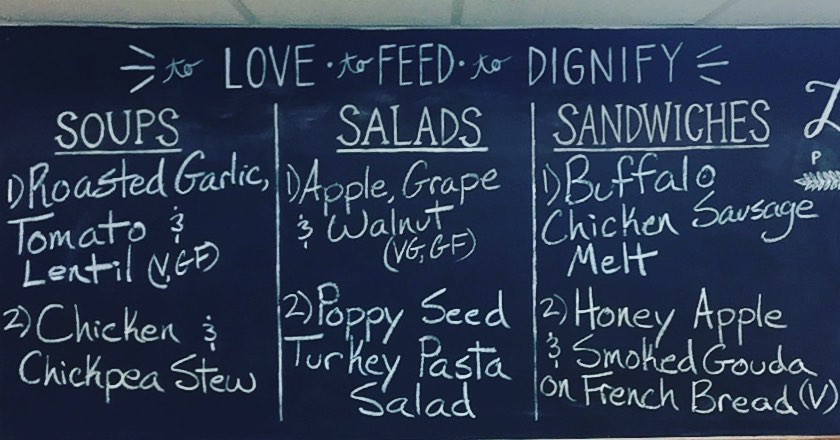 to LOVE · to FEED · to DIGNIFY
SOUPS
1) Roasted Garlic,
Tomato &
Lentil (V, GF)
2) Chicken &
Chickpea Stew
SALADS
1) Apple, Grape
& Walnut
(VG, GF)
2) Poppy Seed
Turkey Pasta
Salad
SANDWICHES
1) Buffalo
Chicken Sausage
Melt
2) Honey Apple
& Smoked Gouda
on French Bread (V)
P